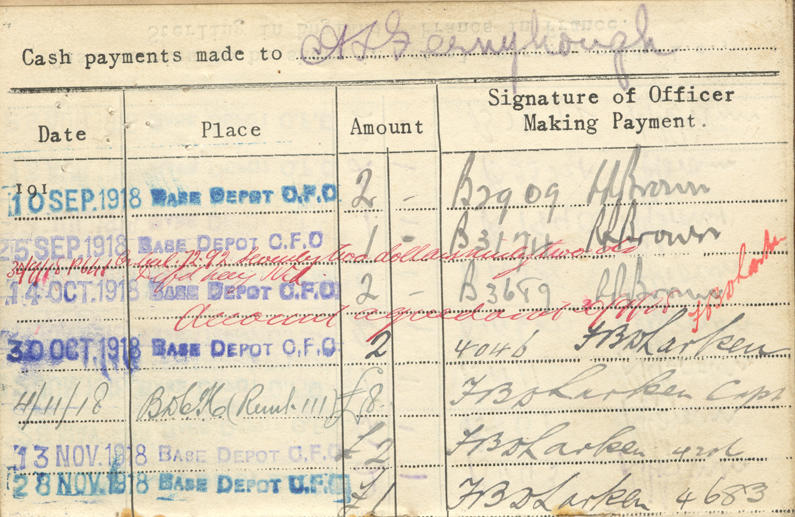 Cash payments made to A L Fernyhough
Date Place Amount Signature of Officer Making Payment.
191
10 SEP. 1918 BASE DEPOT O.F.O 2 - B2909 H Brown
25 SEP 1918 BASE DEPOT C.F.O 1 - B3174 H Brown
dollars
14 OCT. 1918 BASE DEPOT C.F.O 2 - B3689 H Brown
FBD Larken
Account
30 OCT. 1918 BASE DEPOT C.F.O 2 4046 FBD Larken
4/11/18 £8 FBD Larken Capt
13 NOV. 1918 BASE DEPOT C.F.O £2 FBD Larken
28 NOV. 1918 BASE DEPOT C.F.O £1 FBD Larken 4683